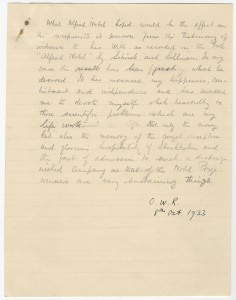 What Alfred Nobel hoped would be the effect on
the recipients is known from the Testimony of
witnesses to his Will as recorded in the book
"Alfred Nobel" by Schück and Sohlman. In my
case the result has been precisely what he
desired. It has increased my happiness,
and independence and has enabled
me to devote myself whole-heartedly to
those scientific problems which are my
life work. the way the money
but also the memory of the royal reception
and glowing hospitality of Stockholm and
the fact of admission to such a
company as that of the Nobel Prize
winners are very sustaining things.
O. W. R.
Oct 1933